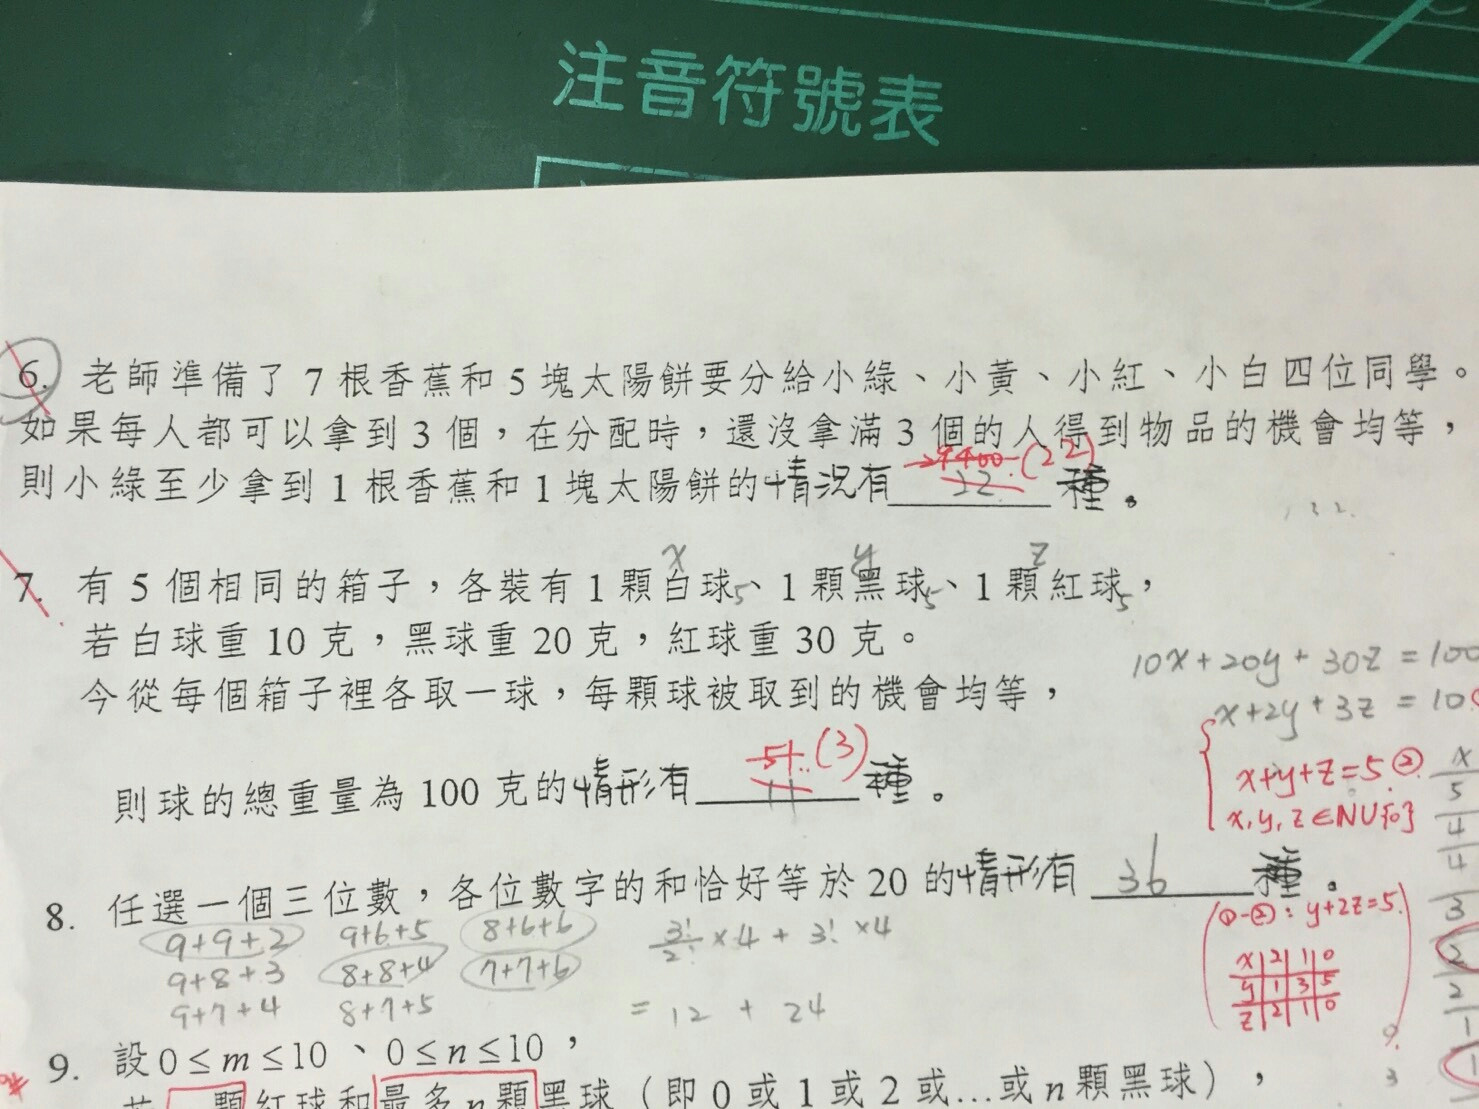 注音符號表
6. 老師準備了 7 根香蕉和 5 塊太陽餅要分給小綠、小黃、小紅、小白四位同學。
如果每人都可以拿到 3 個，在分配時，還沒拿滿 3 個的人得到物品的機會均等，
24400 (22)
則小綠至少拿到 1 根香蕉和 1 塊太陽餅的情況有 22 種。
x y z
7. 有 5 個相同的箱子，各裝有 1 顆白球5、1 顆黑球5、1 顆紅球5，
若白球重 10 克，黑球重 20 克，紅球重 30 克。
10x+20y+30z=100
今從每個箱子裡各取一球，每顆球被取到的機會均等，
x+2y+3z=10
51 (3)
x+y+z=5 ②
則球的總重量為 100 克的情形有 11 種。
x,y,z∈N∪{0}
x
5
4
4
3
2
2
1
1
8. 任選一個三位數，各位數字的和恰好等於 20 的情形有 36 種。
(①-②：y+2z=5)
9+9+2 9+6+5 8+6+6
3!/2! ×4 + 3! ×4
9+8+3 8+8+4 7+7+6
x|2|1|0
y|1|3|5
z|2|1|0
9+7+4 8+7+5
= 12 + 24
9. 設 0≤m≤10、0≤n≤10，
顆紅球和最多 n 顆黑球（即 0 或 1 或 2 或…或 n 顆黑球），